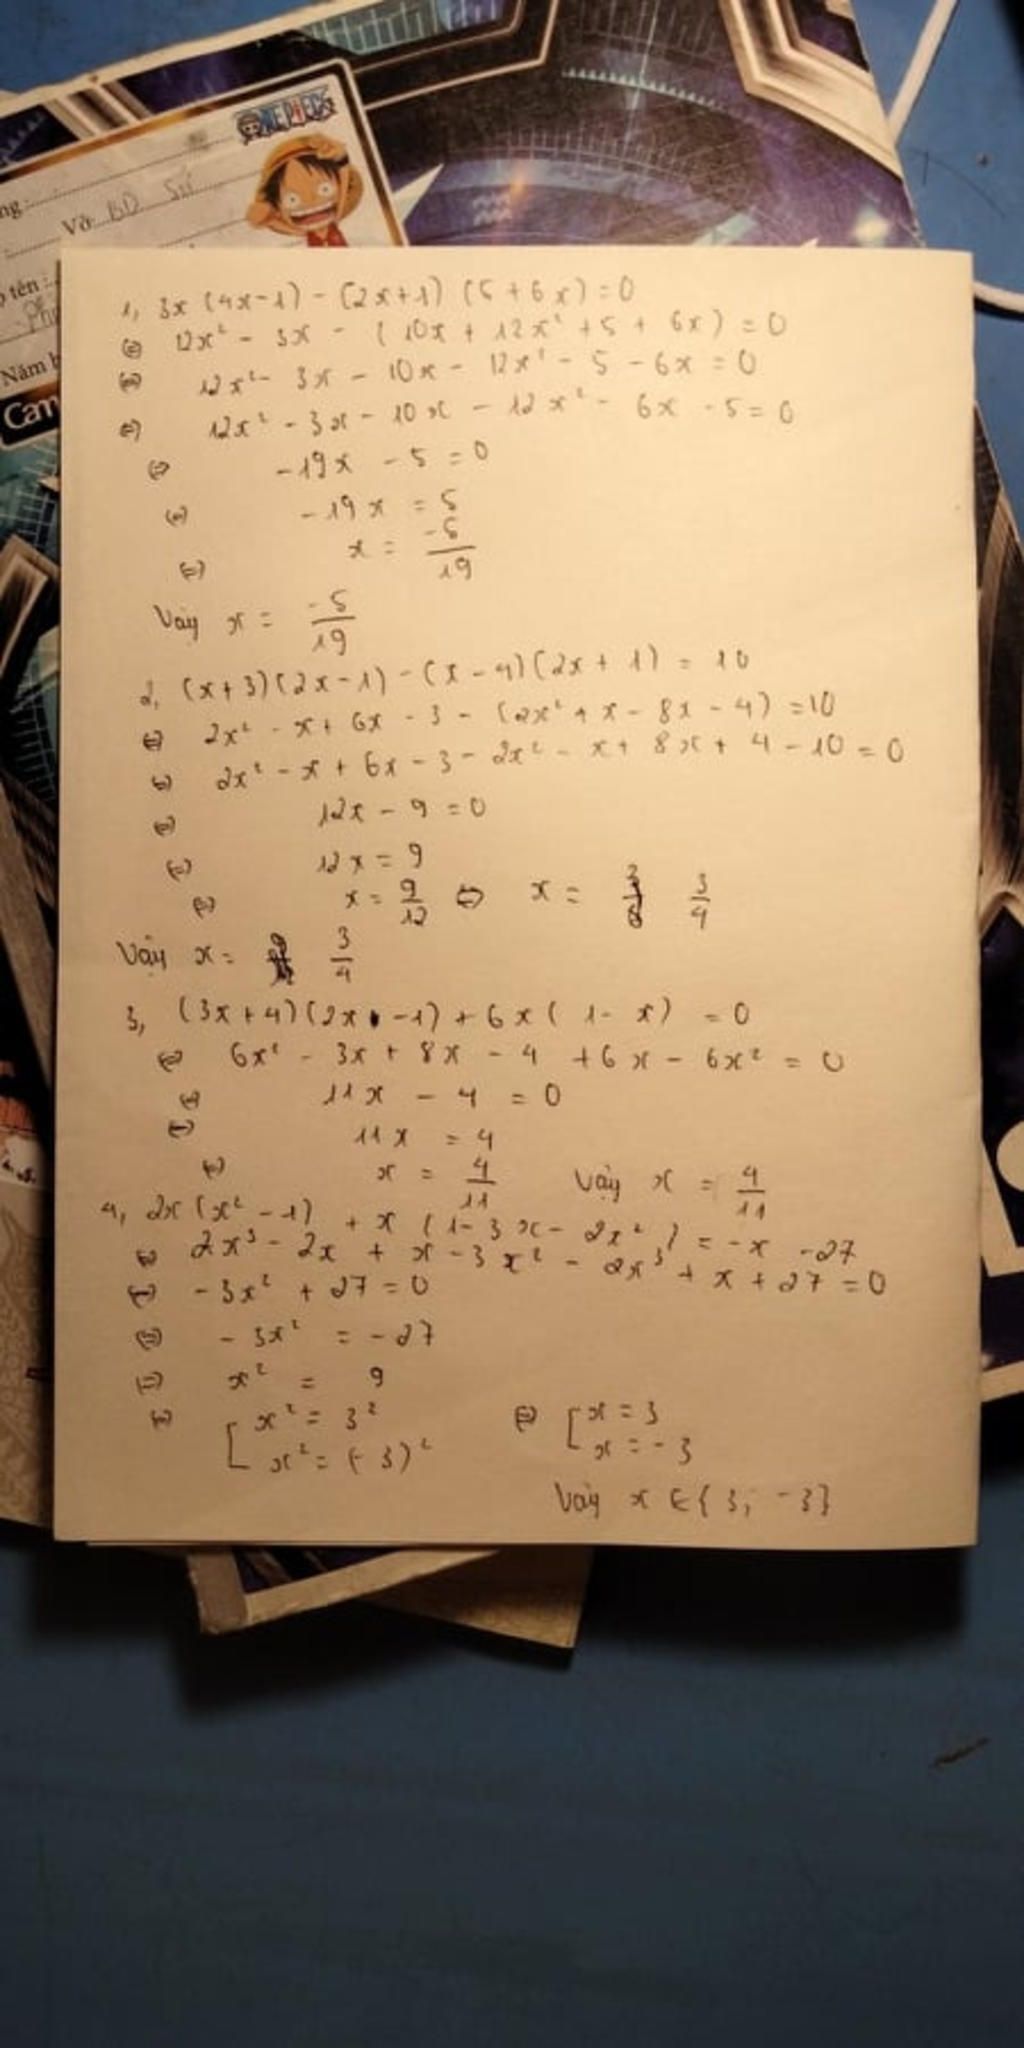 ONE PIECE
ng :
Vở: BD Sử
tên :
Năm
Cam
1, 3x (4x-1) - (2x+1) (5+6x) = 0
⇔ 12x² - 3x - (10x + 12x² + 5 + 6x) = 0
⇔ 12x² - 3x - 10x - 12x² - 5 - 6x = 0
⇔ 12x² - 3x - 10x - 12x² - 6x - 5 = 0
⇔ -19x - 5 = 0
⇔ -19x = 5
⇔ x = -5/19
Vậy x = -5/19
2, (x+3)(2x-1) - (x-4)(2x+1) = 10
⇔ 2x² - x + 6x - 3 - (2x² + x - 8x - 4) = 10
⇔ 2x² - x + 6x - 3 - 2x² - x + 8x + 4 - 10 = 0
⇔ 12x - 9 = 0
⇔ 12x = 9
⇔ x = 9/12 ⇔ x = 3/4
Vậy x = 3/4
3, (3x+4)(2x-1) + 6x(1-x) = 0
⇔ 6x² - 3x + 8x - 4 + 6x - 6x² = 0
⇔ 11x - 4 = 0
⇔ 11x = 4
⇔ x = 4/11 Vậy x = 4/11
4, 2x(x²-1) + x(1-3x-2x²) = -x -27
⇔ 2x³ - 2x + x - 3x² - 2x³ + x + 27 = 0
⇔ -3x² + 27 = 0
⇔ -3x² = -27
⇔ x² = 9
⇔ [x² = 3² ⇔ [x = 3
x² = (-3)² x = -3
Vậy x ∈ {3; -3}